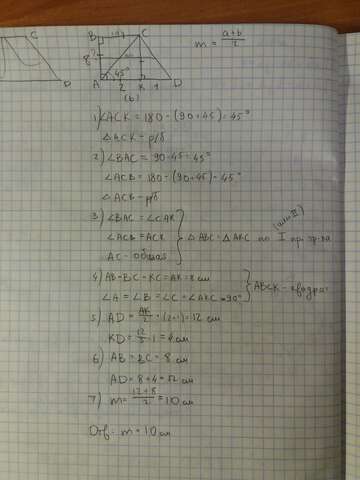 C
D
B
C
8
A
45°
2
K
1
D
(b)
m = a+b / 2
1) ∠ACK = 180 - (90+45) = 45°
△ACK - р/б
2) ∠BAC = 90-45 = 45°
∠ACB = 180 - (90+45) = 45°
△ACB - р/б
3) ∠BAC = ∠CAK
∠ACB = ACK
AC - общая
△ABC = △AKC по I пр. тр-ка
(или II)
4) AB = BC = KC = AK = 8 см
∠A = ∠B = ∠C = ∠AKC = 90°
ABCK - квадрат
5) AD = AK / 2 · (2+1) = 12 см
KD = 12 / 3 · 1 = 4 см
6) AB = BC = 8 см
AD = 8 + 4 = 12 см
7) m = 12+8 / 2 = 10 см
Отв: m = 10 см